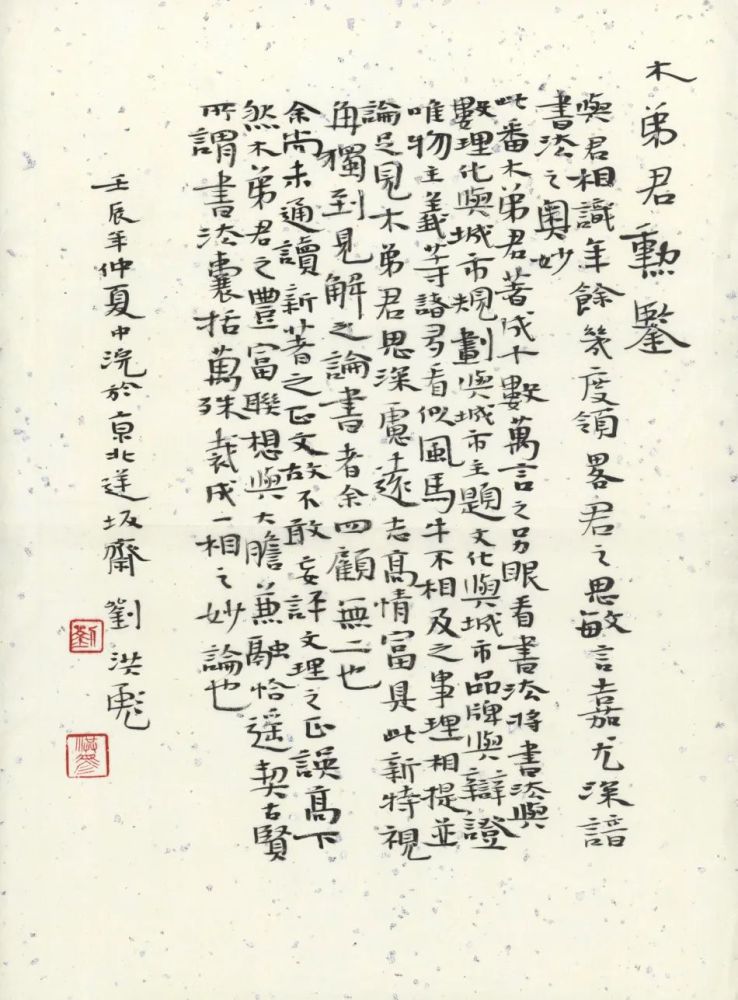 木弟君勳鑒
與君相識年餘幾度領畧君之思敏言嘉尤深諳
書法之奧妙
此番木弟君著成十數萬言之另眼看書法將書法與
數理化與城市規劃與城市主題文化與城市品牌與辯證
唯物主義等諸多看似風馬牛不相及之事理相提並
論足見木弟君思深慮遠志高情富具此新特視
角獨到見解之論書者余四顧無二也
余尚未通讀新著之正文故不敢妄評文理之正誤高下
然木弟君之豐富聯想與大膽兼融恰遥契古賢
所謂書法囊括萬殊裁成一相之妙論也
壬辰年仲夏中浣於京北逆坂齋 劉洪彪
劉
洪彪